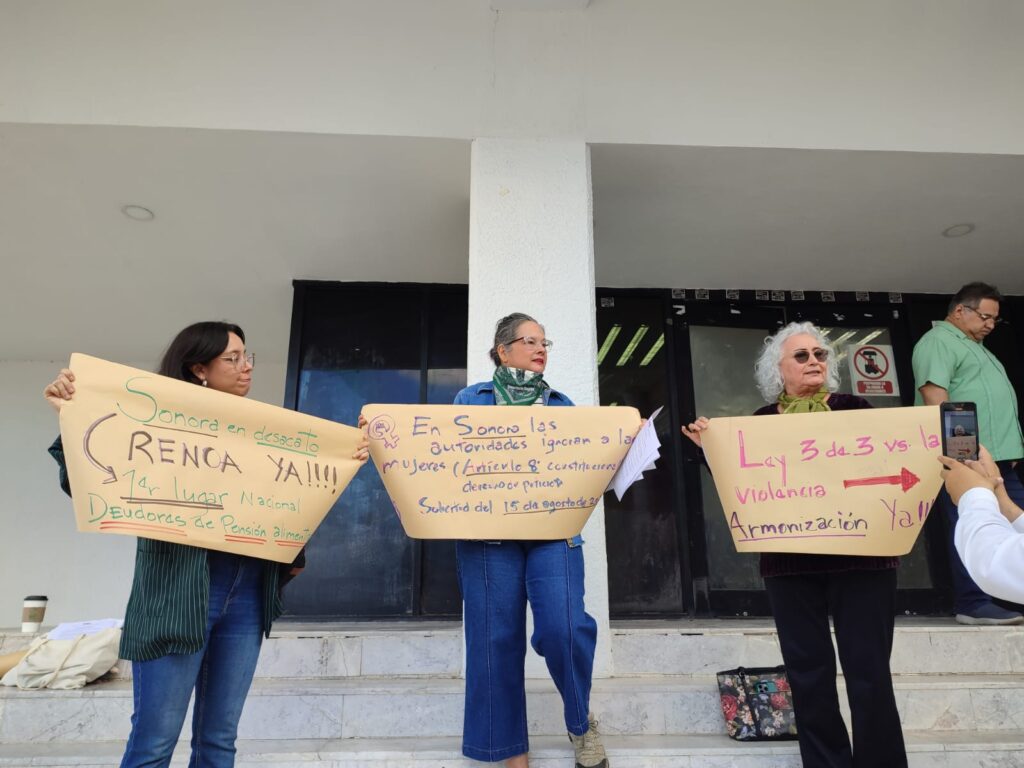 Sonora en desacato
RENOA YA!!!!
1er lugar Nacional
Deudores de Pensión
En Sonora las
autoridades ignoran a la
mujeres (Artículo 8 constituciona
derecho de petición
Solicitud del 15 de agosto de 2
Ley 3 de 3 vs. la
violencia
Armonización Ya!!!